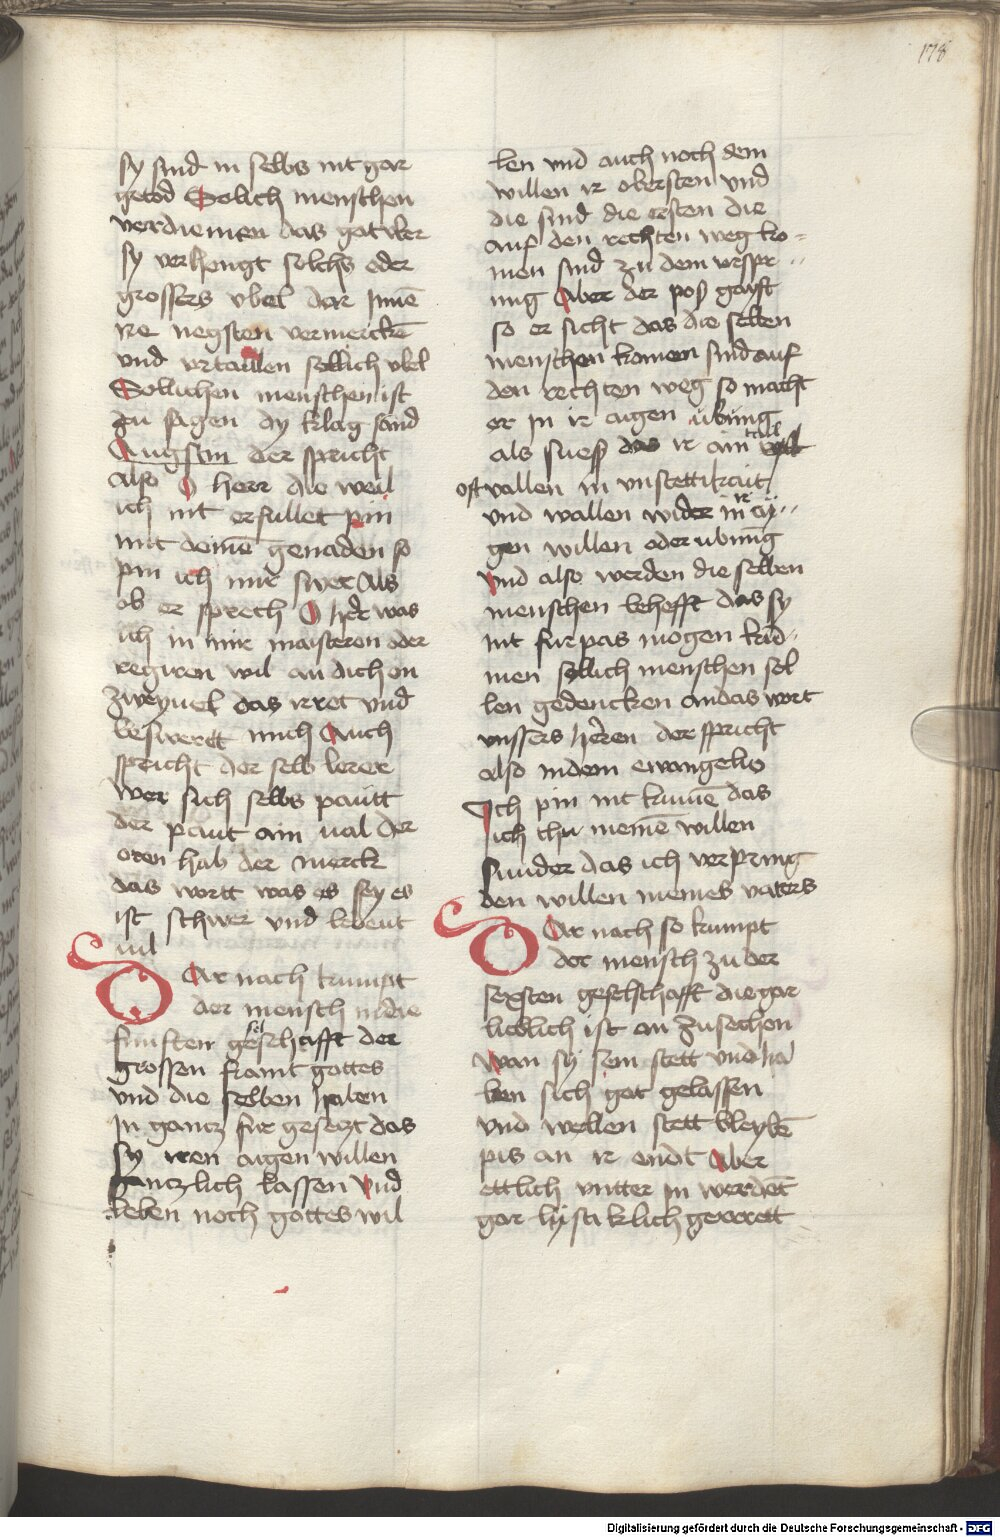 178
sy sind in selbs nit gar
getod Solich menschen
verdienen das got vber
sy verhengt solchs oder
grossers vbel dar Jnnē
ire negsten vermerckē
vnd vrtaillen sollich vbel
Sollichen menschen ist
zu sagen dy klag sand
Augstin der spricht
also O herr die weil
ich nit erfullet pin
mit deinē genaden so
pin ich mir swer Als
ob er sprech O her was
ich in mir maisteren oder
regiren wil an dich on
zweyuel das irret vnd
beswerett mich Auch
spricht der selb lerer
Wer sich selbs pautt
der paut ain ual der
oren hab der merck
das wortt was es sey es
ist schwer und bedeut
uil
DAr nach kumpt
der mensch in die
funften geselschafft der
grossen framt gottes
vnd die selben haben
In gancz fur gesetzt das
sy iren aigen willen
gantzlich lassen Vnd
leben noch gottes wil
len vnd auch noch dem
willen ir obersten vnd
die sind die ersten die
auf den rechten weg ko
men sind zu dem vrspr
nng Aber der pos gayst
so er sicht das die selben
menschen komen sind auf
den rechten weg so macht
er in ir aigen übung
als suess das ir ain tail
oft vallen in vnstettikait
vnd wallen wider in ir ay
gen willen oder ubung
Vnd also werden die selben
menschen behefft das sy
nit furpas mogen kū
men sollich menschen sol
len gedencken an das wort
vnssers heren der spricht
also in dem ewangelio
Ich pin nit kumē das
ich thu meinē willen
sunder das ich verpring
den willen meines vaters
DAr nach so kumpt
der mensch zu der
sexsten geselschafft die gar
lieblich ist an zusechen
Wan sy sein stett vnd ha
ben sich got gelassen
vnd wellen stett bleybē
pis an ir endt Aber
ettlich vntter in werdēt
gar lystiklich geirrett
Digitalisierung gefördert durch die Deutsche Forschungsgemeinschaft - DFG